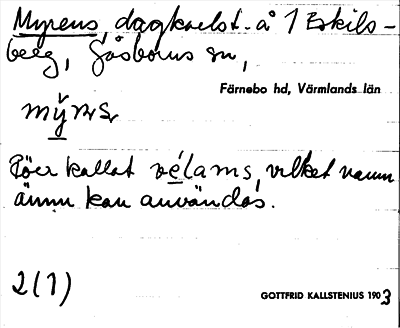 Myrens, dagkarlst. å 1 Eskils-
berg, Gåsborns sn,
Färnebo hd, Värmlands län
mỹrs
Förr kallat vélams, vilket namn
ännu kan användas.
2(1)
GOTTFRID KALLSTENIUS 1903